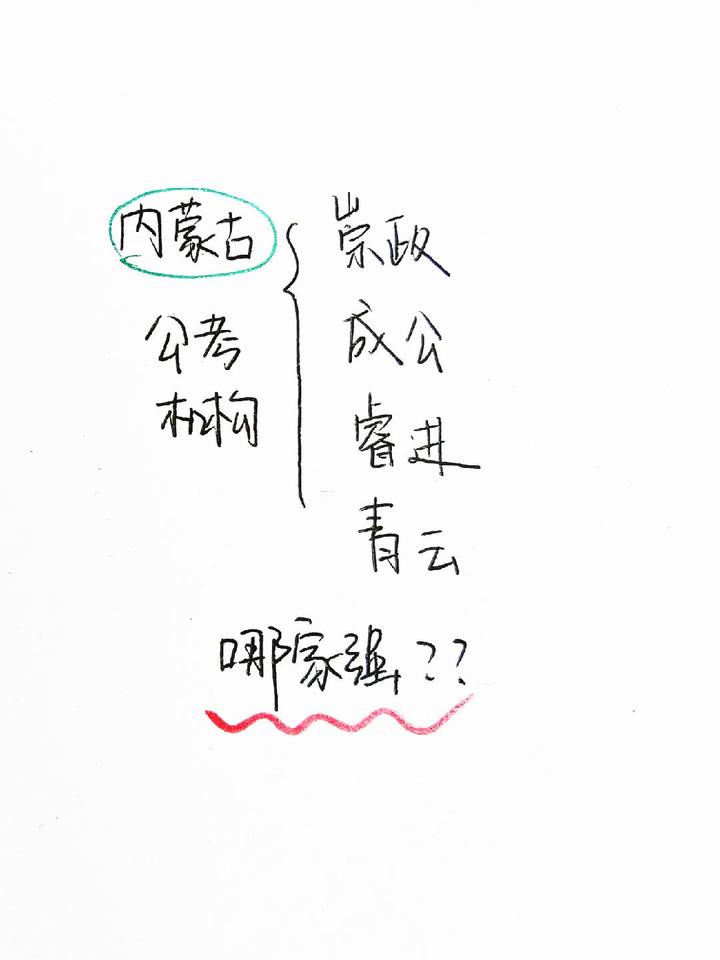 内蒙古
公考
机构
崇政
成公
睿进
青云
哪家强??